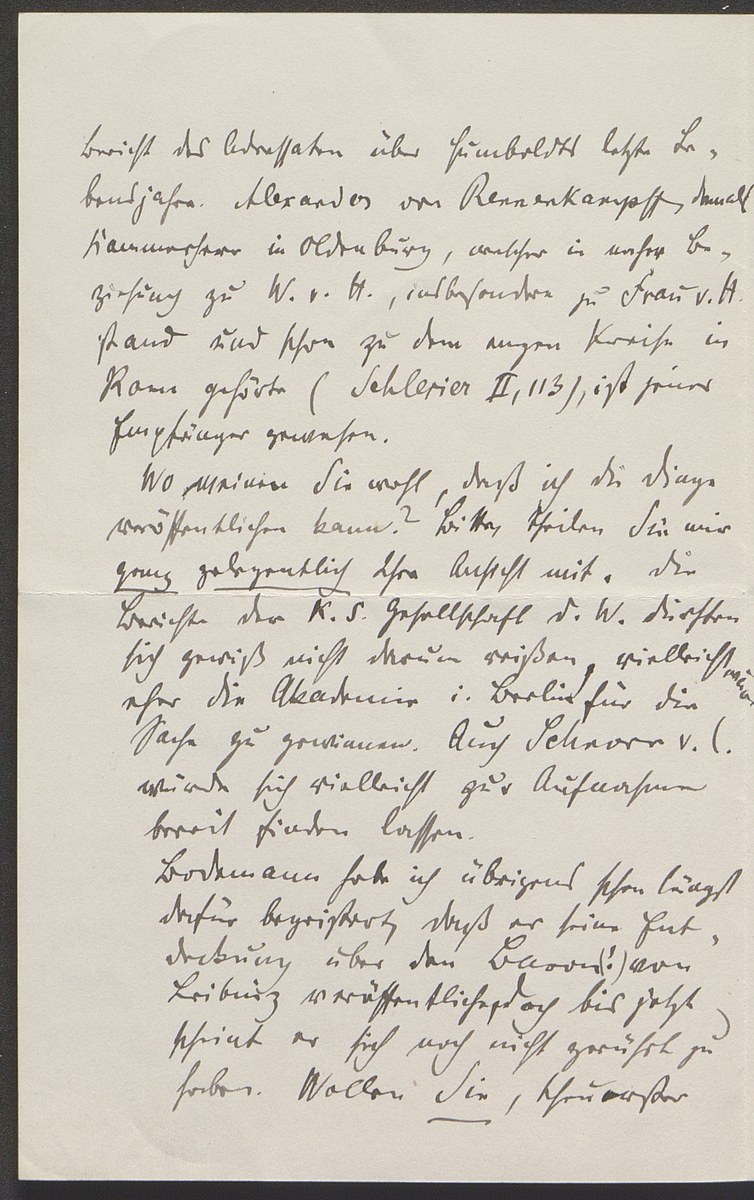 Bericht des Adressaten über Humboldts letzte Le-
bensjahre. Alexander von Rennenkampff, damals
Kammerherr in Oldenburg, welcher in naher Be-
ziehung zu W. v. H., insbesondere zu Frau v. H.
stand und schon zu dem engen Kreise in
Rom gehörte (Schlesier II, 113), ist jener
Empfänger gewesen.
Wo meinen Sie wohl, daß ich die Dinge
veröffentlichen kann? Bitte, theilen Sie mir
ganz gelegentlich Ihre Ansicht mit. Die
Berichte der K. S. Gesellschaft d. W. dürften
sich gewiß nicht darum reißen, vielleicht wäre
eher die Akademie i. Berlin für die
Sache zu gewinnen. Auch Schnorr v. C.
würde sich vielleicht zur Aufnahme
bereit finden lassen.
Bodemann habe ich übrigens schon längst
dafür begeistert, daß er seine Ent-
deckung über den Baron(!) von
Leibniz veröffentliche, doch bis jetzt
scheint er sich noch nicht gerührt zu
haben. Wollen Sie, theuerster